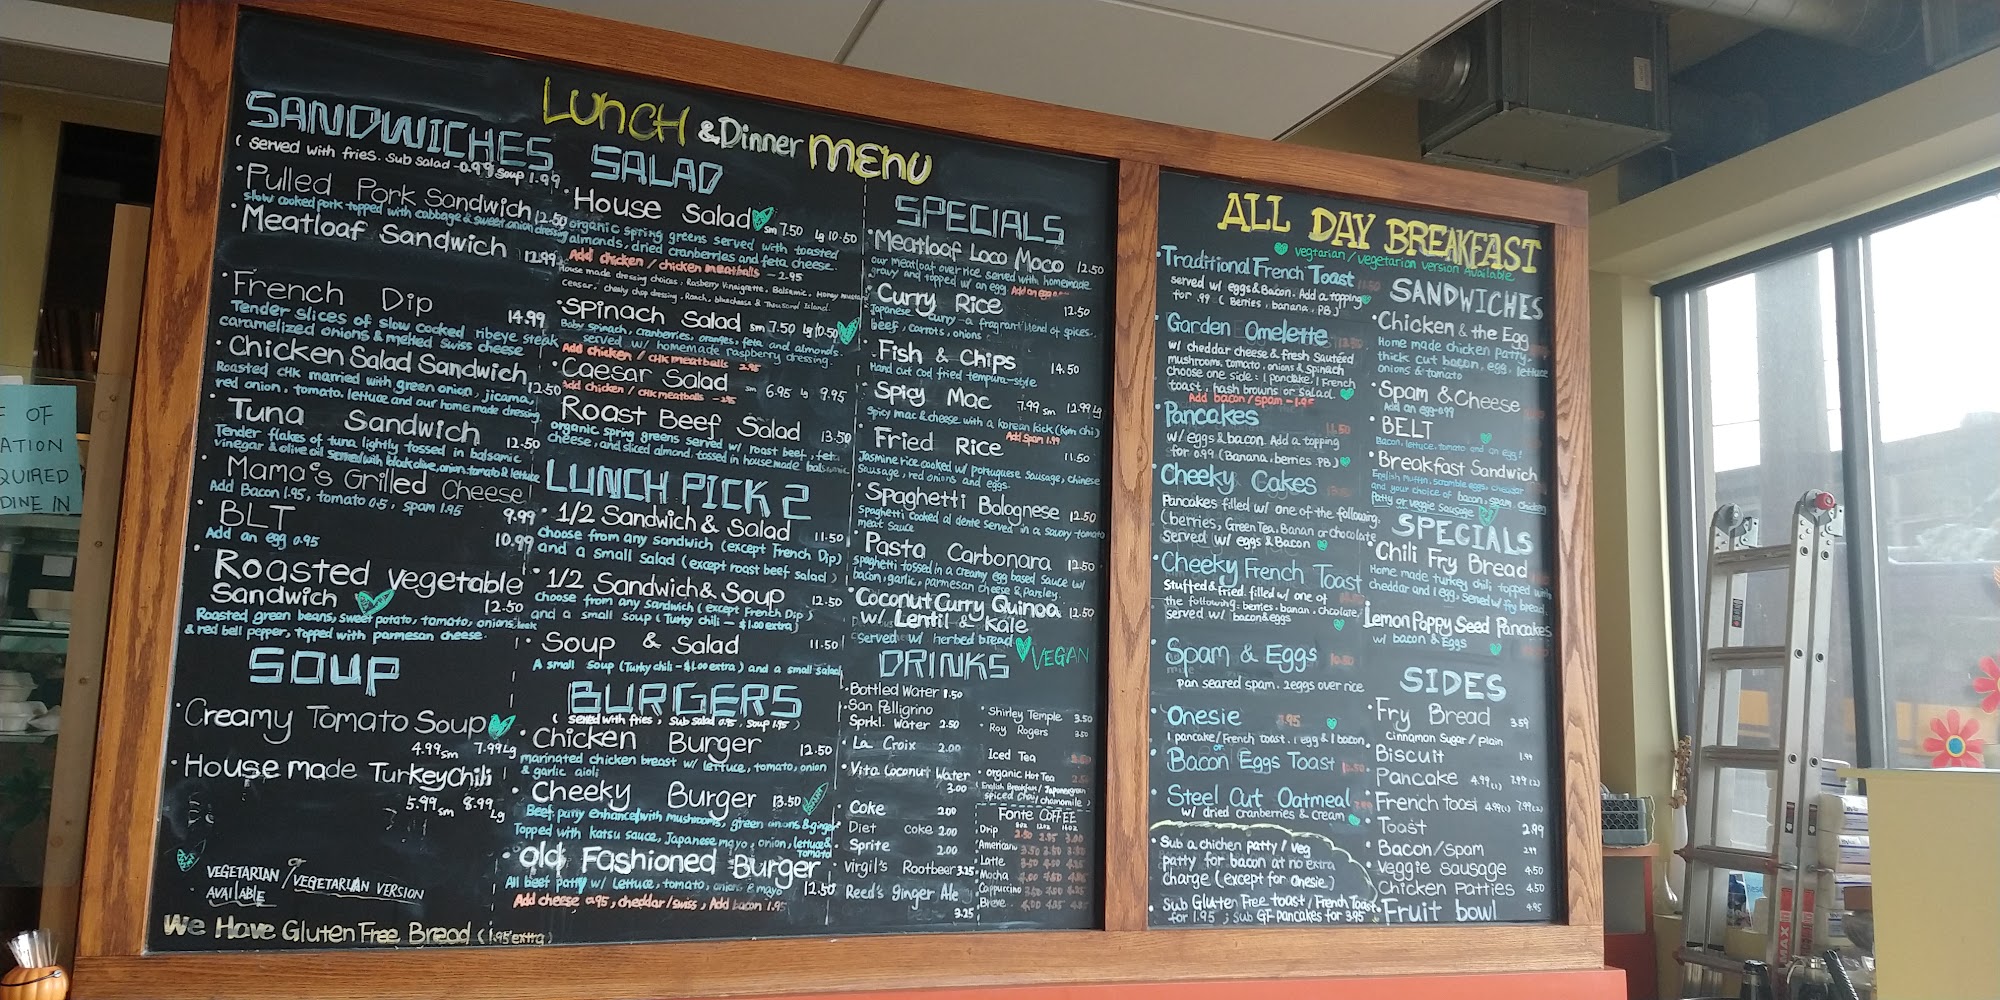 LUNCH & Dinner MENU
SANDWICHES
( served with fries. Sub Salad -0.99 Soup 1.99
• Pulled Pork Sandwich 12.50
slow cooked pork topped with cabbage & sweet onion dressing
• Meatloaf Sandwich 12.99
• French Dip 14.99
Tender slices of slow cooked ribeye steak
caramelized onions & melted Swiss cheese
• Chicken Salad Sandwich 12.50
Roasted chk married with green onion, jicama,
red onion, tomato, lettuce and our home made dressing
• Tuna Sandwich 12.50
Tender flakes of tuna lightly tossed in balsamic
vinegar & olive oil served with black olive, onion, tomato & lettuce
• Mama's Grilled Cheese! 9.99
Add Bacon 1.95, tomato 0.5, spam 1.95
• BLT 10.99
Add an egg 0.95
• Roasted Vegetable
Sandwich 12.50
Roasted green beans, sweet potato, tomato, onions,
& red bell pepper, topped with parmesan cheese.
SOUP
• Creamy Tomato Soup
4.99 sm 7.99 Lg
• House made Turkey Chili
5.99 sm 8.99 Lg
VEGETARIAN or / VEGETARIAN VERSION
AVAILABLE
We Have Gluten Free Bread (1.95 extra)
SALAD
• House Salad sm 7.50 Lg 10.50
organic spring greens served with toasted
almonds, dried cranberries and feta cheese.
Add chicken / chicken meatballs - 2.95
House made dressing choices, Rasberry Vinaigrette, Balsamic, Honey mustard
Ceasar, cheeky chop dressing, Ranch, bluecheese & Thousand Island.
• Spinach Salad sm 7.50 Lg 10.50
Baby spinach, cranberries, oranges, feta and almonds.
served w/ homemade raspberry dressing.
Add chicken / chk meatballs 2.95
• Caesar Salad sm 6.95 Lg 9.95
Add chicken / chk meatballs - 2.95
Roast Beef Salad 13.50
organic spring greens served w/ roast beef, feta
cheese, and sliced almond tossed in house made balsamic
LUNCH PICK 2
• 1/2 Sandwich & Salad 11.50
Choose from any sandwich (except French Dip)
and a small salad (except roast beef salad)
• 1/2 Sandwich & Soup 12.50
choose from any sandwich (except French Dip)
and a small soup (Turky chili - $1.00 extra)
• Soup & Salad 11.50
A small soup (Turky chili - $1.00 extra) and a small salad
BURGERS
( served with fries, Sub salad 0.95, Soup 1.95 )
• Chicken Burger 12.50
marinated chicken breast w/ lettuce, tomato, onion
& garlic aioli
• Cheeky Burger 13.50
Beef patty enhanced with mushrooms, green onions & ginger
Topped with katsu sauce, Japanese mayo, onion, lettuce &
Tomato
• Old Fashioned Burger 12.50
All beef patty w/ lettuce, tomato, onions & mayo
Add cheese 0.95, cheddar/swiss, Add bacon 1.95
SPECIALS
• Meatloaf Loco Moco 12.50
our meatloaf over rice served with homemade
gravy and topped w/ an egg Add an egg
• Curry Rice 12.50
Japanese curry - a fragrant blend of spices.
beef, carrots, onions
• Fish & Chips 14.50
Hand cut cod fried tempura-style
Spicy Mac 7.99 sm 12.99 Lg
Spicy mac & cheese with a korean kick (Kim chi)
• Fried Rice Add Spam 1.99 11.50
Jasmine rice cooked w/ Portuguese sausage, chinese
sausage, red onions and eggs.
• Spaghetti Bolognese 12.50
Spaghetti cooked al dente served in a savory tomato
meat sauce
• Pasta Carbonara 12.50
Spaghetti tossed in a creamy egg based sauce w/
bacon, garlic, parmesan cheese & parsley.
• Coconut Curry Quinoa 12.50
w/ Lentil & Kale
Served w/ herbed bread VEGAN
DRINKS
• Bottled Water 1.50
• San Pelligrino
Sprkl. Water 2.50
• La Croix 2.00
• Vita Coconut Water
3.00
• Coke 2.00
Diet coke 2.00
• Sprite 2.00
Virgil's Rootbeer 3.25
Reed's Ginger Ale
3.25
• Shirley Temple 3.50
• Roy Rogers 3.50
Iced Tea
• organic Hot Tea
( English Breakfast / Japanese green
spiced chai / chamomile )
Fonte COFFEE
Drip 2.50 2.75 3.00
Americano
Latte
Mocha
Cappuccino
Breve
ALL DAY BREAKFAST
vegtarian / vegetarian version Available
• Traditional French Toast
served w/ eggs & Bacon. Add a topping
for .99 ( Berries, banana, PB )
• Garden Omelette
w/ cheddar cheese & fresh Sautéed
mushroom, tomato, onions & Spinach
choose one side: 1 pancake, 1 French
toast, hash browns or Salad
Add bacon / spam - 1.95
• Pancakes
w/ eggs & bacon. Add a topping
for 0.99 (Banana, berries PB)
• Cheeky Cakes
Pancakes filled w/ one of the following,
(berries, Green Tea, Banan or chocolate
Served w/ eggs & Bacon
• Cheeky French Toast
Stuffed & Fried, filled w/ one of
the following - berries, banan, chocolate,
served w/ bacon & eggs
• Spam & Eggs
pan seared spam, 2 eggs over rice
• Onesie
1 pancake/French toast, 1 egg & 1 bacon
• Bacon Eggs Toast
• Steel Cut Oatmeal
w/ dried cranberries & cream
• Sub a chichen patty / veg
patty for bacon at no extra
charge (except for Onesie)
• Sub Gluten Free toast / French Toast
for 1.95 ; sub GF pancakes for 3.95
SANDWICHES
• Chicken & the Egg
Home made chicken patty,
thick cut bacon, egg, lettuce
onions & tomato
• Spam & Cheese
Add an egg 0.99
• BELT
Bacon, lettuce, tomato and an egg!
• Breakfast Sandwich
English Muffin, scramble eggs, cheddar
and your choice of bacon, spam, chicken
Patty or veggie sausage
SPECIALS
• Chili Fry Bread
Home made turkey chili, topped with
cheddar and 1 egg, served w/ fry bread.
Lemon Poppy Seed Pancakes
w/ bacon & Eggs
SIDES
• Fry Bread 3.59
Cinnamon Sugar / plain
• Biscuit 1.99
Pancake 4.99 (1) 7.99 (2)
• French toast 4.99 (1) 7.99 (2)
• Toast 2.99
• Bacon/Spam 2.99
• Veggie Sausage 4.50
• Chicken Patties 4.50
• Fruit bowl 4.95
OF
ATION
QUIRED
DINE IN